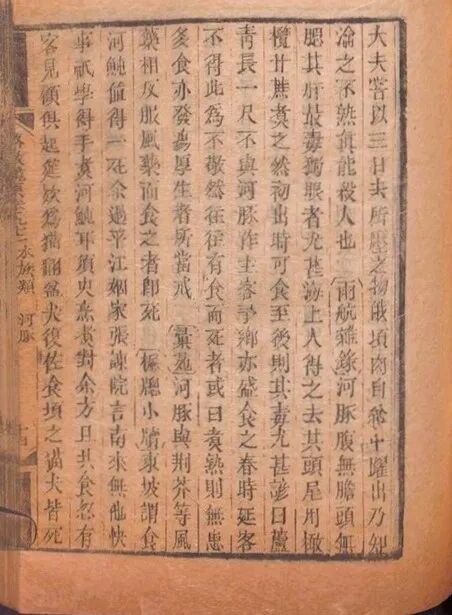 大夫嘗以三日去所壓之物俄頃肉自釜中躍出乃知
瀹之不熟眞能殺人也 雨航雜錄河豚腹無膽頭無
腮其肝最毒獨眼者尤甚海上人得之去其頭尾用橄
欖甘蔗煮之然初出時可食至後則其毒尤甚諺曰蘆
靑長一尺不與河豚作主客予鄕亦盛食之春時延客
不得此爲不敬然往往有食而死者或曰煮熟則無患
多食亦發瘍厚生者所當戒 彙苑河豚與荆芥等風
藥相反服風藥而食之者卽死 楓窻小牘東坡謂食
河魨值得一死余過平江姻家張諫院言南來無他快
事祇學得手煮河魨耳須臾烹煮對余方且共食忽有
客見顧俱起延欵爲猫翻盆犬復佐食頃之猫犬皆死
水族類 河豚